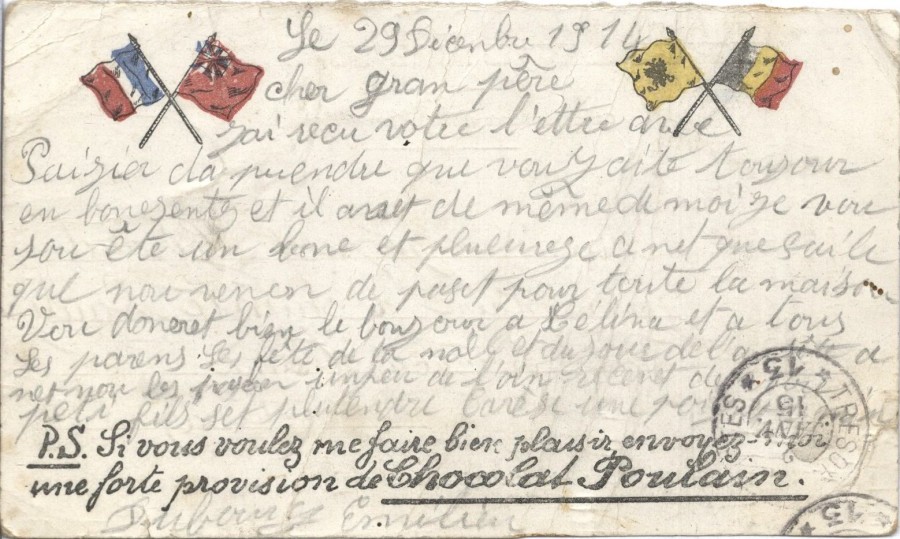 Le 29 Décenbre 1914
cher gran père
jai recu votre l'ettre avec
Plaizier da prendre que vou zaite toujour
en bone zente et il anset de même de moi je vou
sou ête un bone et plueureze anet que sai le
que nou venon de paset pour toute la maison
Vou doneret bien le bonzour a Célina et a tous
les parens les fête de la noel et du jour de l'an
net nou les un peu de l'oin
petit fils set plu tendre une
P.S. Si vous voulez me faire bien plaisir, envoyez-moi
une forte provision de Chocolat Poulain.
Dubourg Emilien
TRESOR
15